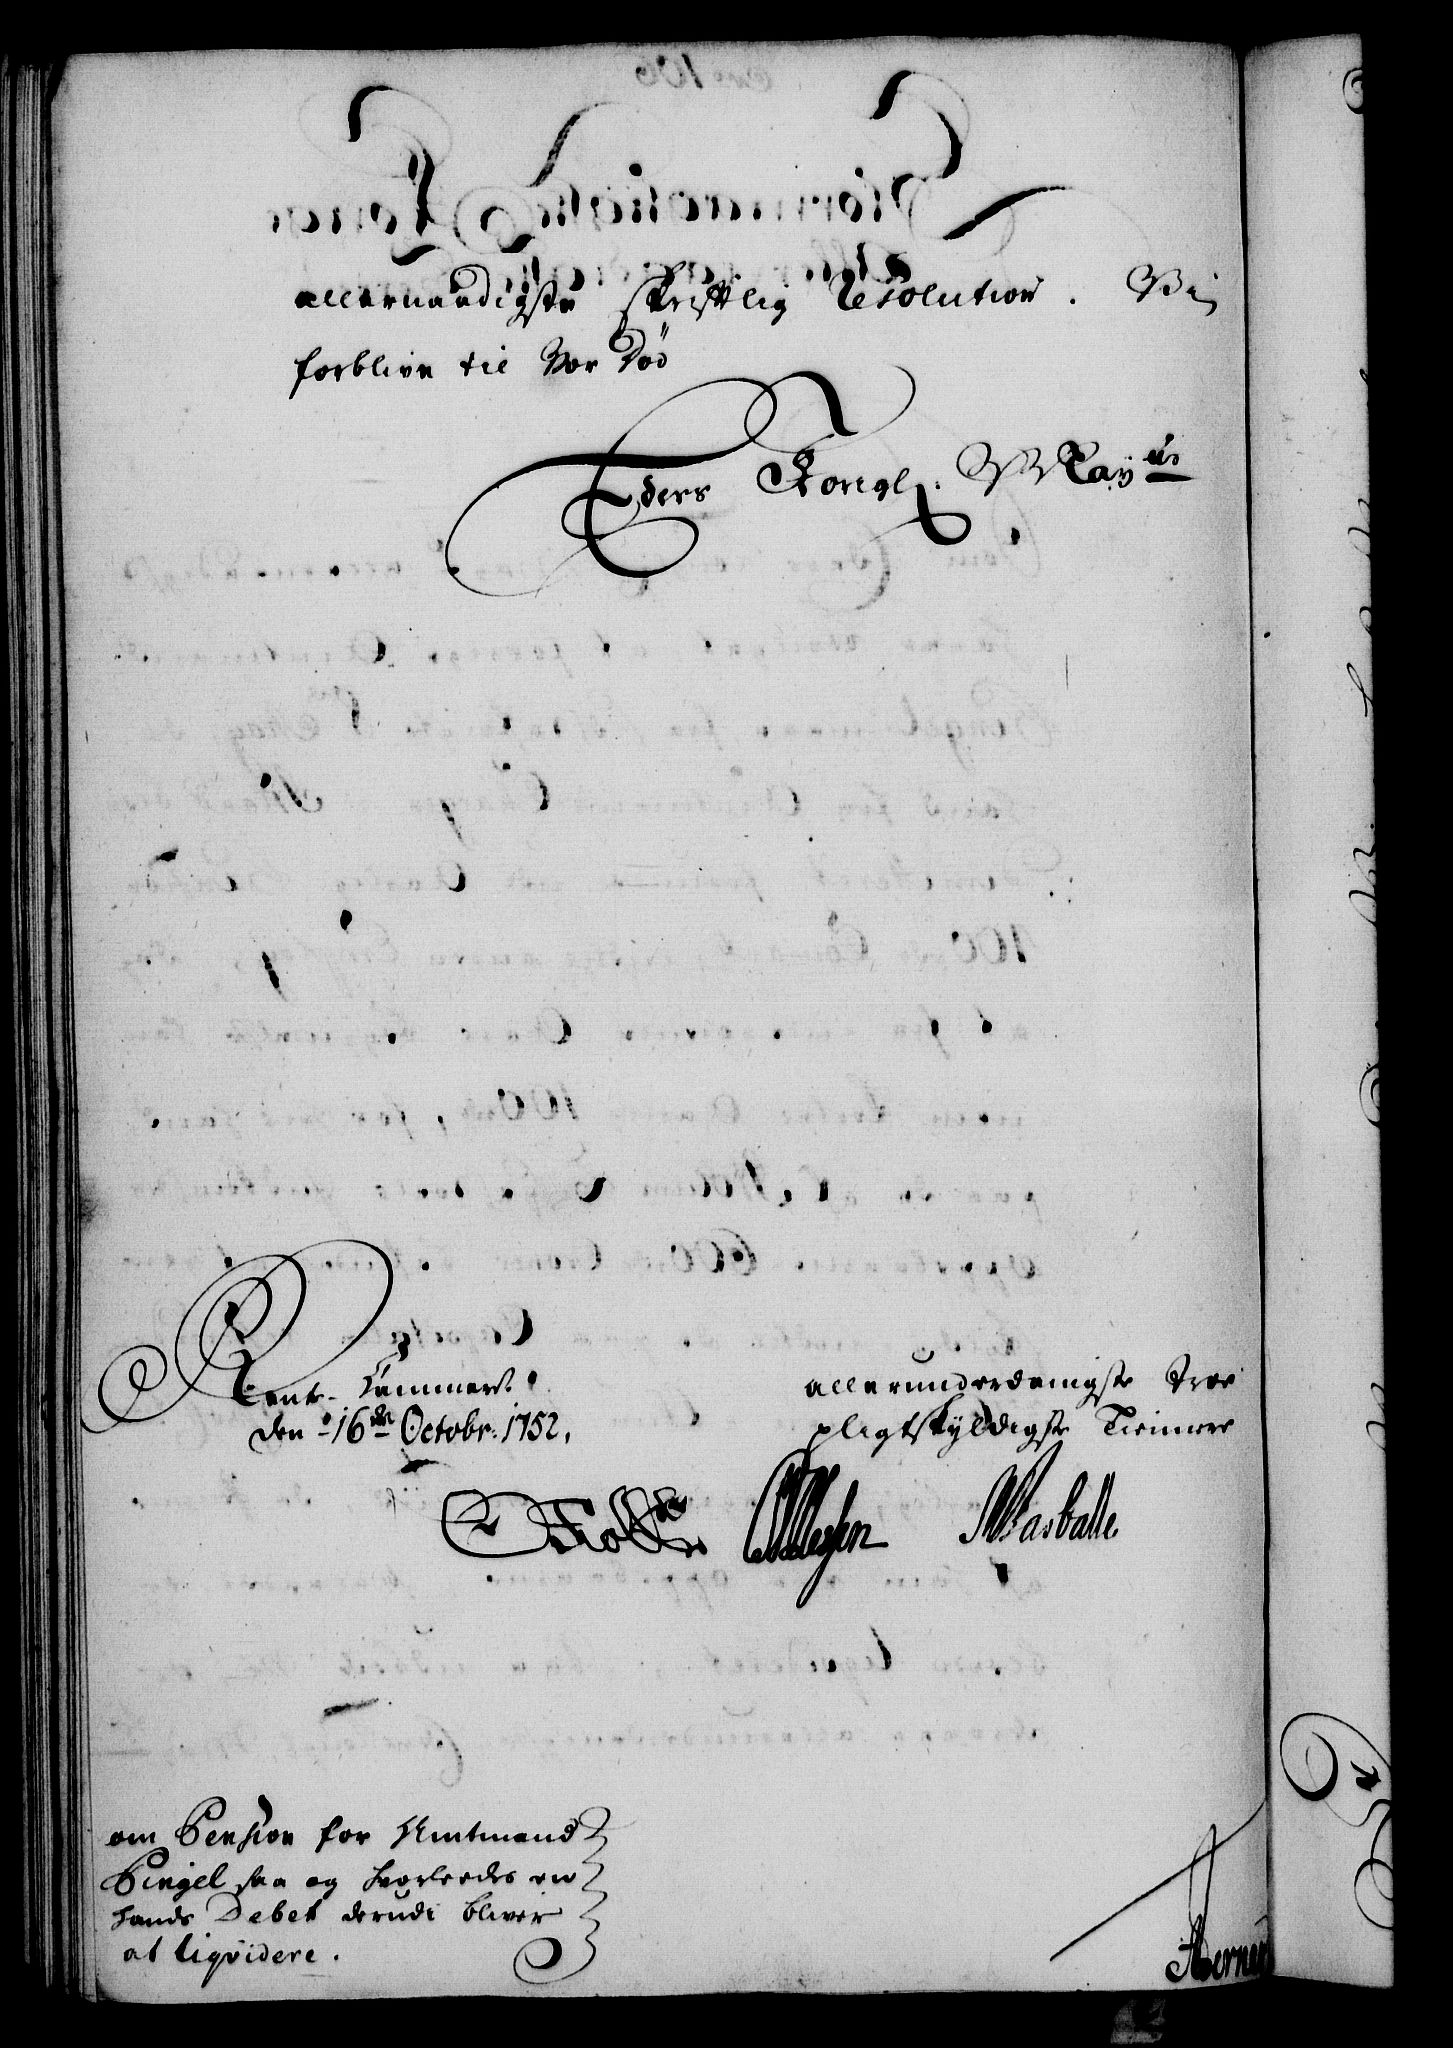 allernaadigste skriftlig Resolution. Vi
forblive til Vor Død
Eders Kongl. Mayts
Rente-Cammeret
den 16de Octobr: 1752.
allerunderdanigste troe
pligtskyldigste Tienere
Holst
Barballe
om Pension for Amtmand
Pingel saa og hvorledes en
hands Debet derudi bliver
at liqvidere.